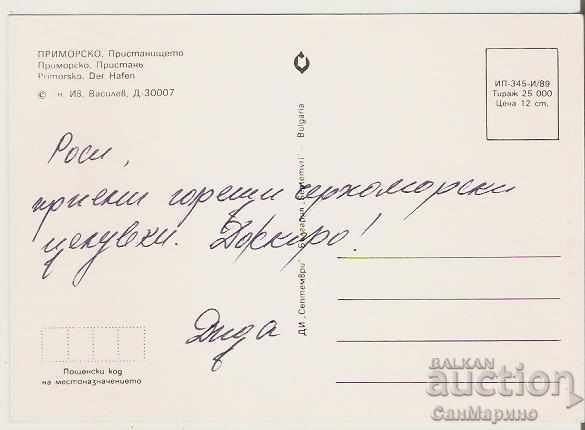 ПРИМОРСКО. Пристанището
Приморско. Пристань
Primorsko. Der Hafen
© н. Ив. Василев, Д-30007
ИП-345-И/89
Тираж 25 000
Цена 12 ст.
Роси,
приеми горещи черноморски
целувки. Доскоро!
Дида
ДИ „Септември" Bulgaria
Пощенски код
на местоназначението
BALKAN
auction
СанМарино